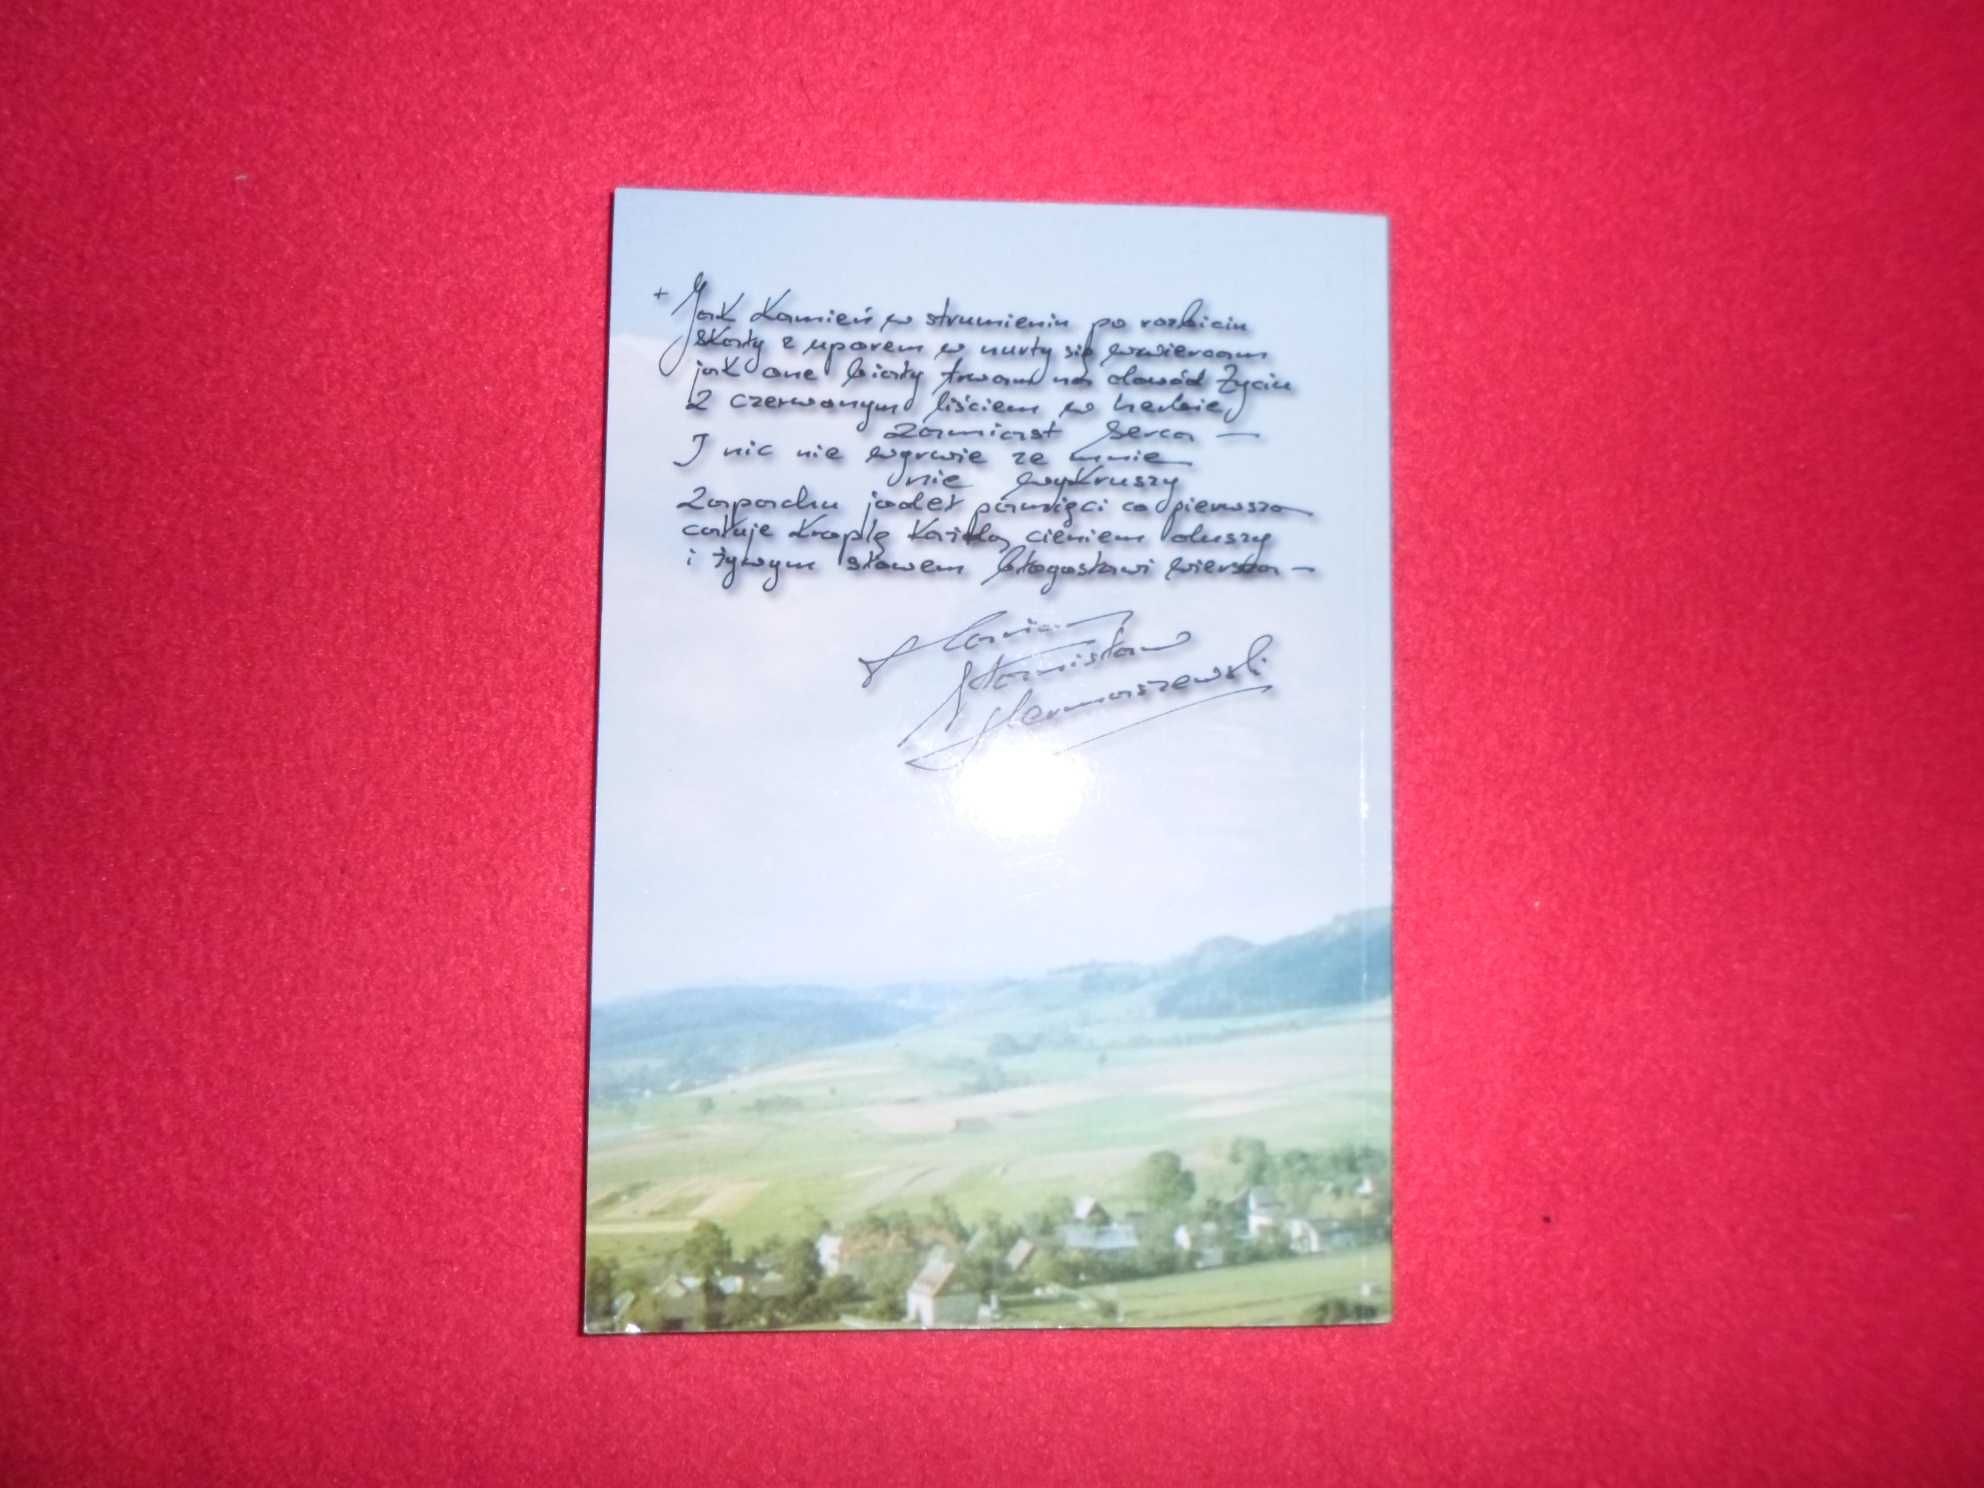 + Jak kamień w strumieniu po rozbiciu
skały z uporem w nurty się wwiercam
jak one biały trwam na dowód życiu
z czerwonym liściem w herbie
zamiast serca —
I nic nie wyrwie ze mnie
nie wykruszy
Zapachu jodeł pamięci co pierwsza
całuje kroplę każdą cieniem duszy
i żywym słowem błogosławi wiersza —
Marian
Stanisław
Hermaszewski